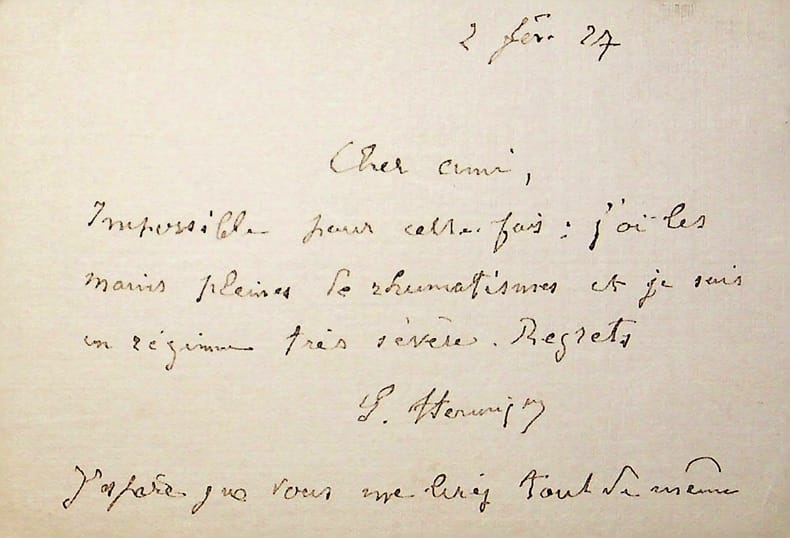 2 fév. 27
Cher ami,
Impossible pour cette fois : j'ai les
mains pleines de rhumatismes et je suis
un régime très sévère. Regrets
J'espère que vous me lirez tout de même